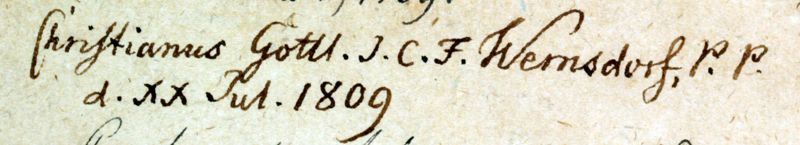 Christianus Gottl. I. C. F. Wernsdorf, P. P.
d. XX Jul. 1809